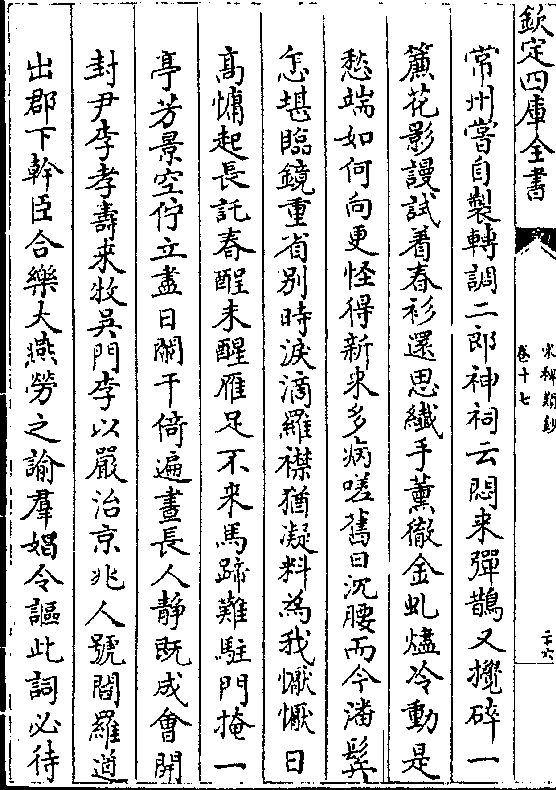 欽定四庫全書
宋稗類鈔
卷十七
二十六
常州嘗自製轉調二郎神祠云悶来彈鵲又攪碎一
簾花影謾試着春衫還思纖手薰徹金虬燼冷動是
愁端如何向更怪得新来多病嗟舊日沉腰而今潘鬂
怎堪臨鏡重省别時淚滴羅襟猶凝料為我懨懨日
髙慵起長託春酲未醒雁足不来馬蹄難駐門掩一
亭芳景空佇立盡日闌干倚遍晝長人静既成會開
封尹李孝壽来牧吳門李以嚴治京兆人號閻羅道
出郡下幹臣合樂大燕勞之諭羣娼令謳此詞必待